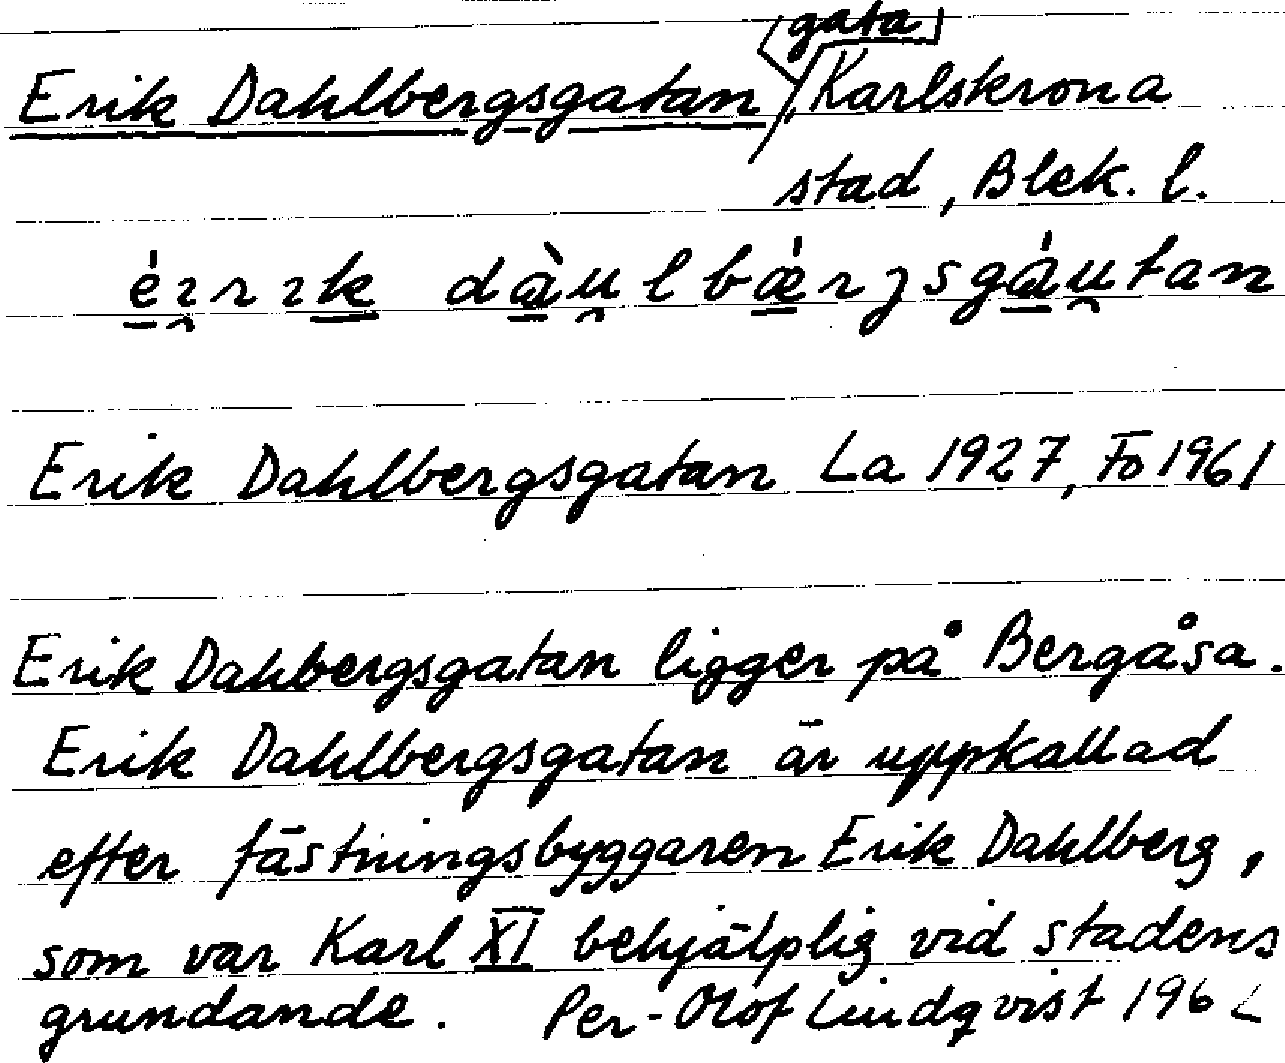 gata
Erik Dahlbergsgatan Karlskrona
stad, Blek. l.
Erik Dahlbergsgatan La 1927, Fo 1961
Erik Dahbergsgatan ligger på Bergåsa.
Erik Dahlbergsgatan är uppkallad
efter fästningsbyggaren Erik Dahlberg,
som var Karl XI behjälplig vid stadens
grundande. Per-Olof Lindqvist